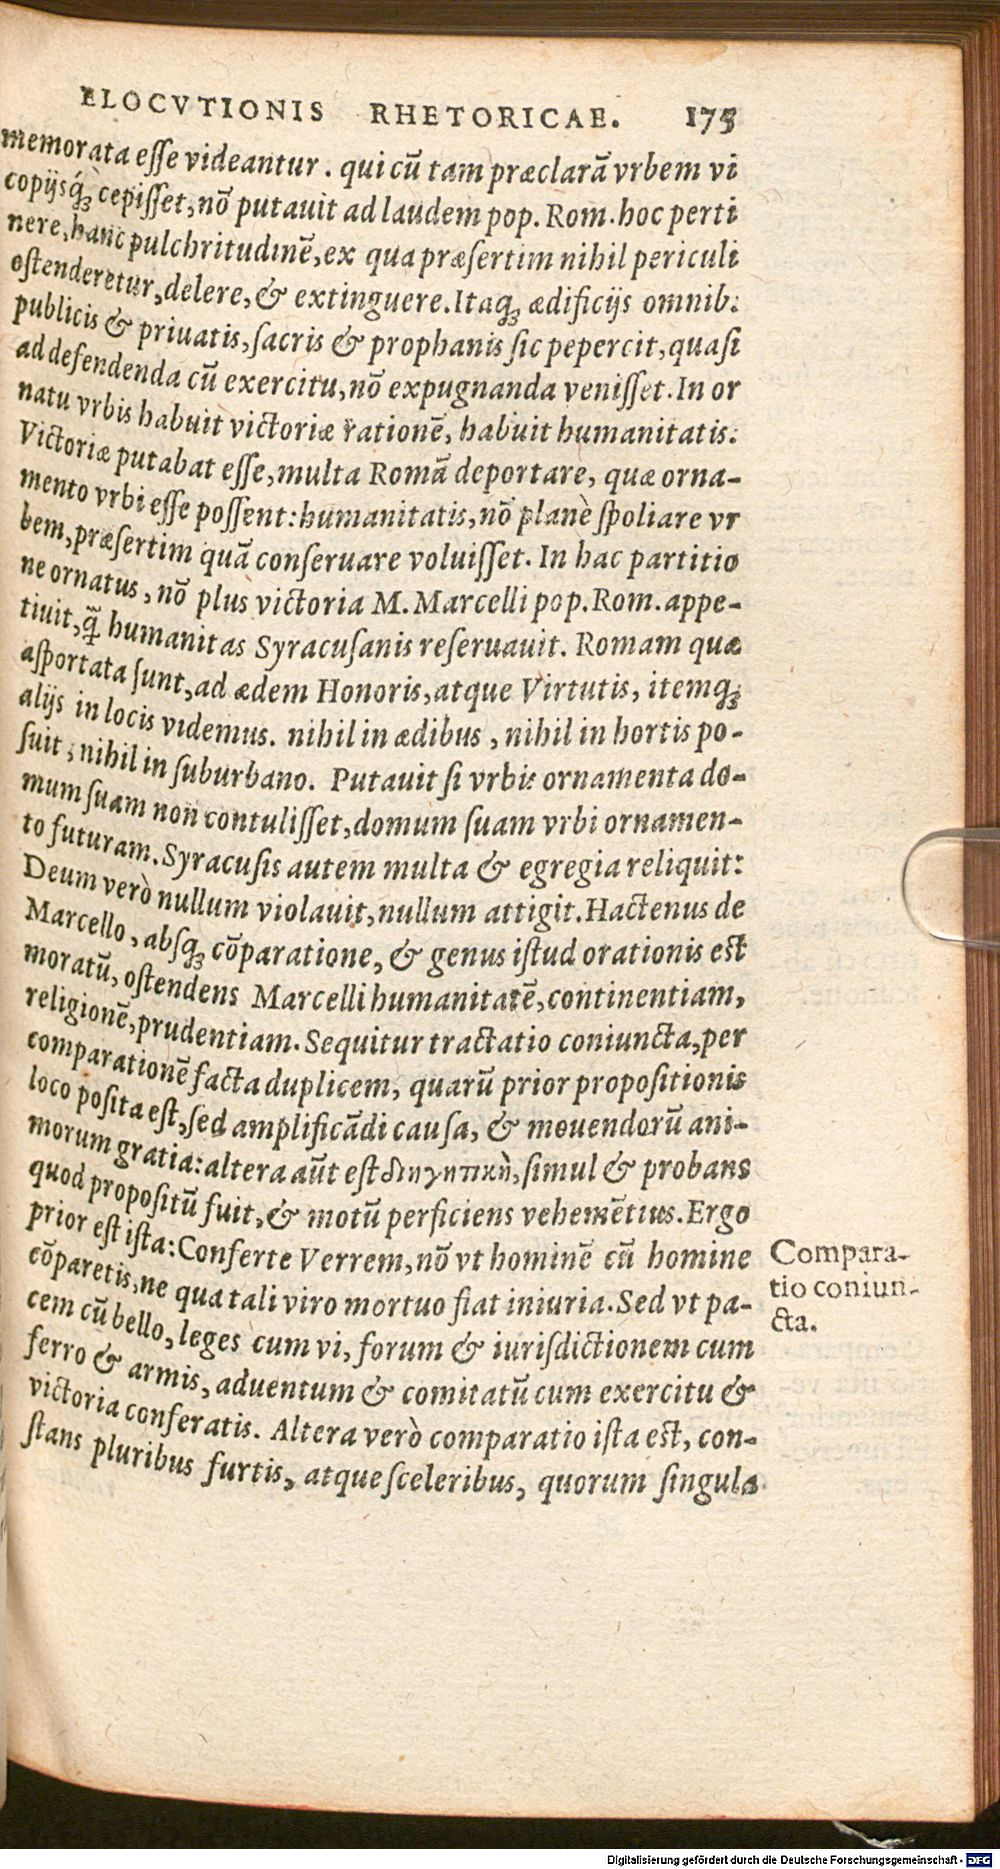 ELOCVTIONIS RHETORICAE. 175
memorata eſſe videantur. qui cū tam præclarā vrbem vi
copijsq́ꝫ cepiſſet, nō putauit ad laudem pop. Rom. hoc perti
nere, hanc pulchritudinē, ex qua præſertim nihil periculi
oſtenderetur, delere, & extinguere. Itaqꝫ ædificijs omnib.
publicis & priuatis, ſacris & prophanis ſic pepercit, quaſi
ad defendenda cū exercitu, nō expugnanda veniſſet. In or
natu vrbis habuit victoriæ rationē, habuit humanitatis.
Victoriæ putabat eſſe, multa Romā deportare, quæ orna-
mento vrbi eſſe poſſent: humanitatis, nō planè ſpoliare vr
bem, præſertim quā conſeruare voluiſſet. In hac partitio
ne ornatus, nō plus victoria M. Marcelli pop. Rom. appe-
tiuit, q̄̃ humanitas Syracuſanis reſeruauit. Romam quæ
aſportata ſunt, ad ædem Honoris, atque Virtutis, itemqꝫ
alijs in locis videmus. nihil in ædibus, nihil in hortis po-
ſuit, nihil in ſuburbano. Putauit ſi vrbis ornamenta do-
mum ſuam non contuliſſet, domum ſuam vrbi ornamen-
to futuram. Syracuſis autem multa & egregia reliquit:
Deum verò nullum violauit, nullum attigit. Hactenus de
Marcello, abſqꝫ cōparatione, & genus iſtud orationis eſt
moratū, oſtendens Marcelli humanitatē, continentiam,
religionē, prudentiam. Sequitur tractatio coniuncta, per
comparationē facta duplicem, quarū prior propoſitionis
loco poſita eſt, ſed amplificādi cauſa, & mouendorū ani-
morum gratia: altera aūt eſt διηγητικὴ, ſimul & probans
quod propoſitū fuit, & motū perficiens vehemētius. Ergo
prior eſt iſta: Conferte Verrem, nō vt hominē cū homine
cōparetis, ne qua tali viro mortuo fiat iniuria. Sed vt pa-
cem cū bello, leges cum vi, forum & iuriſdictionem cum
ferro & armis, aduentum & comitatū cum exercitu &
victoria conferatis. Altera verò comparatio iſta eſt, con-
ſtans pluribus furtis, atque ſceleribus, quorum ſingula
Compara-
tio coniun-
cta.
Digitalisierung gefördert durch die Deutsche Forschungsgemeinschaft - DFG